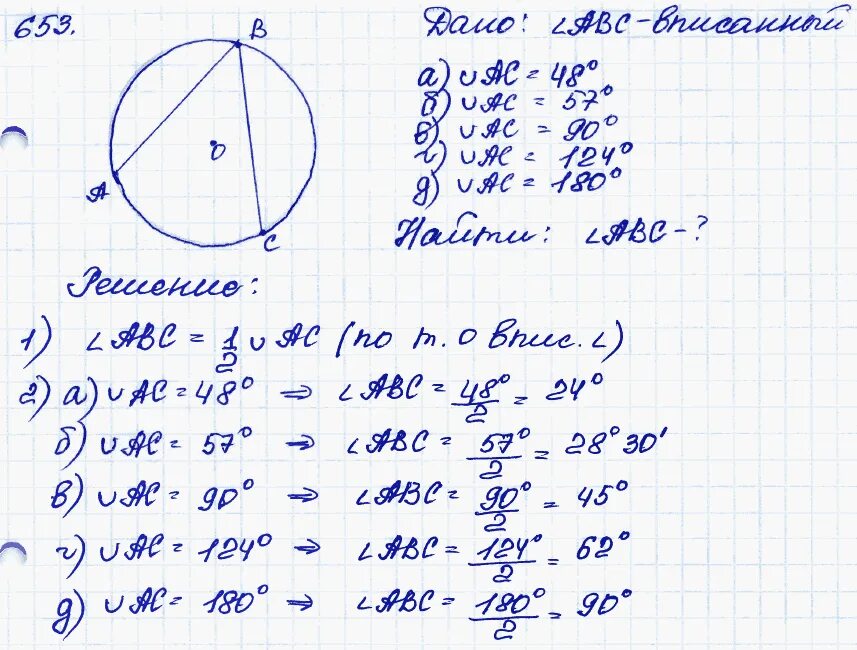 653.
B
O
A
C
Дано: ∠ABC - вписанный
а) ∪AC = 48°
б) ∪AC = 57°
в) ∪AC = 90°
г) ∪AC = 124°
д) ∪AC = 180°
Найти: ∠ABC - ?
Решение:
1) ∠ABC = 1/2 ∪AC (по т. о впис. ∠)
2) а) ∪AC = 48° ⇒ ∠ABC = 48°/2 = 24°
б) ∪AC = 57° ⇒ ∠ABC = 57°/2 = 28°30'
в) ∪AC = 90° ⇒ ∠ABC = 90°/2 = 45°
г) ∪AC = 124° ⇒ ∠ABC = 124°/2 = 62°
д) ∪AC = 180° ⇒ ∠ABC = 180°/2 = 90°